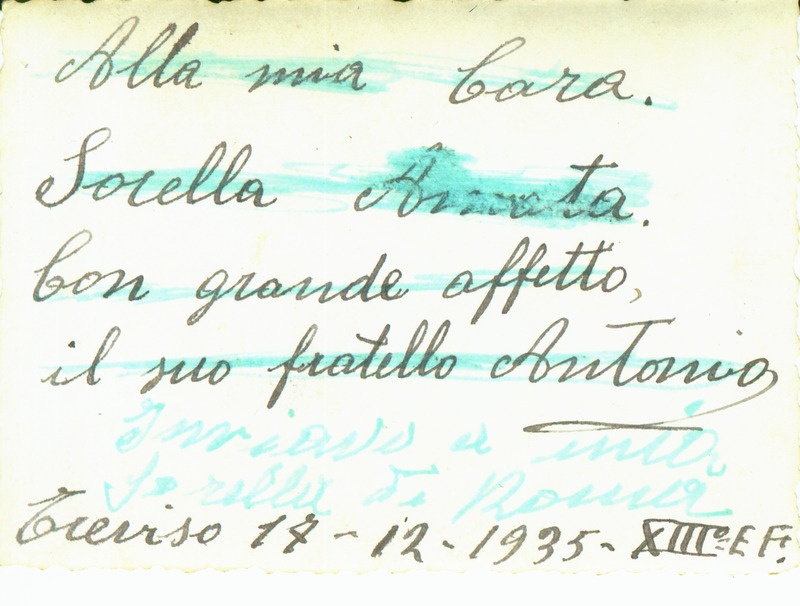 Alla mia Cara.
Sorella Amata.
Con grande affetto,
il suo fratello Antonio
Inviavo a mia
Sorella di Roma
Treviso 17 - 12 - 1935 - XIIIº E F.